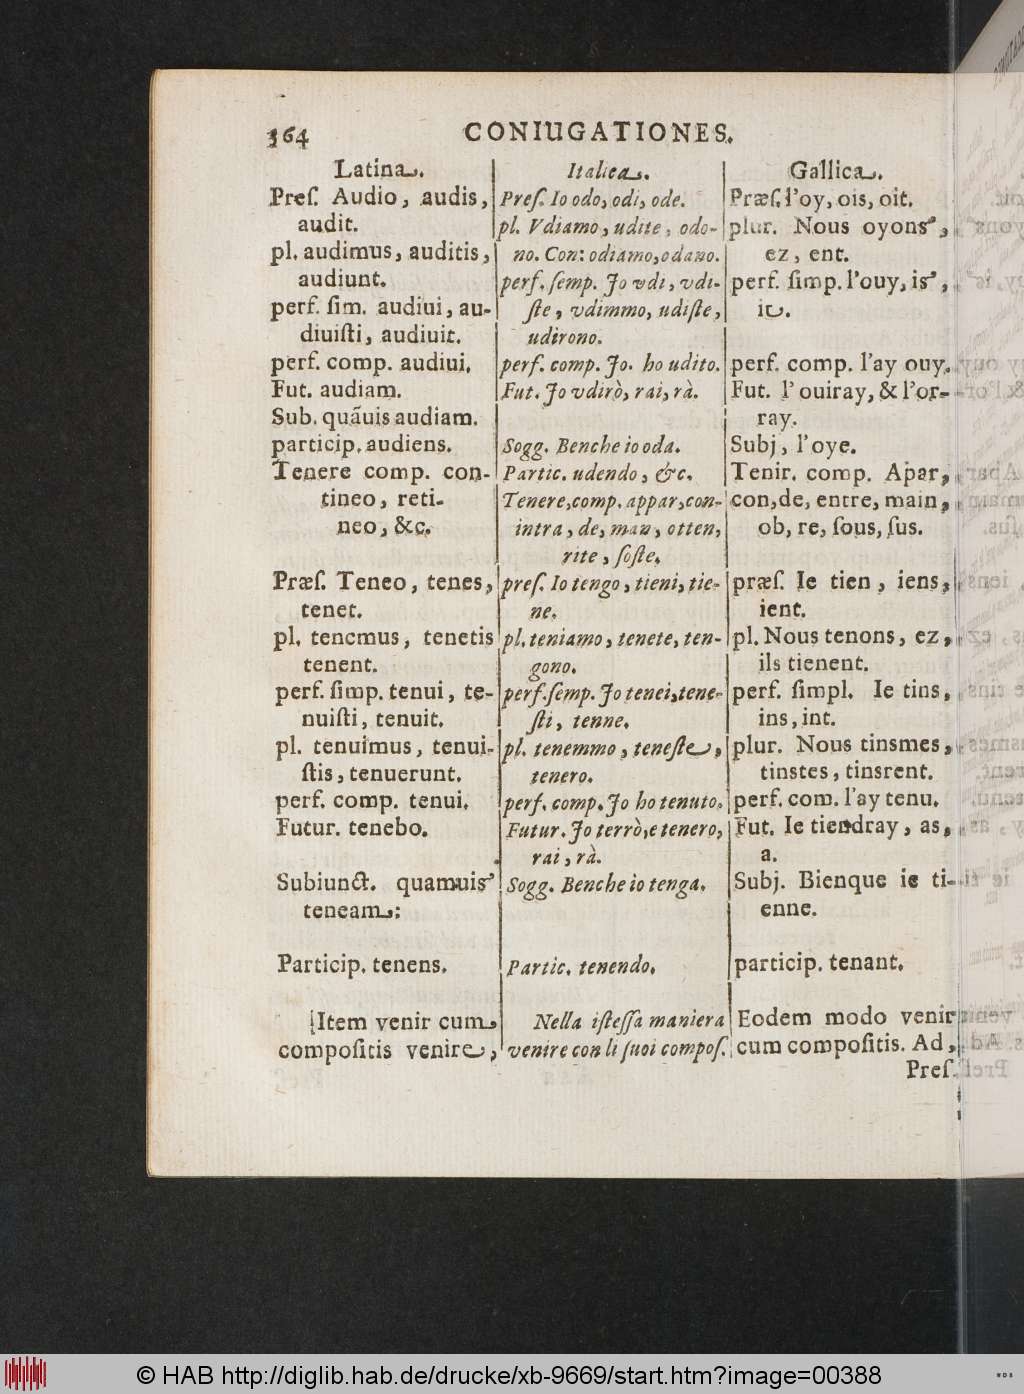 364 CONIUGATIONES.
Latina.
Preſ. Audio, audis,
audit.
pl. audimus, auditis,
audiunt.
perf. ſim. audiui, au-
diuiſti, audiuit.
perf. comp. audiui.
Fut. audiam.
Sub. quãuis audiam.
particip. audiens.
Tenere comp. con-
tineo, reti-
neo, &c.
Præſ. Teneo, tenes,
tenet.
pl. tenemus, tenetis
tenent.
perf. ſimp. tenui, te-
nuiſti, tenuit.
pl. tenuimus, tenui-
ſtis, tenuerunt.
perf. comp. tenui.
Futur. tenebo.
Subiunct. quamuis
teneam:
Particip. tenens.
Item venir cum
compoſitis venire,
Italica.
Preſ. Io odo, odi, ode.
pl. Vdiamo, udite, odo-
no. Con: odiamo, odano.
perf. ſemp. Jo vdi, vdi-
ſte, vdimmo, udiſte,
udirono.
perf. comp. Jo. ho udito.
Fut. Jo vdirò, rai, rà.
Sogg. Benche io oda.
Partic. udendo, &c.
Tenere, comp. appar, con-
intra, de, man, otten,
rite, ſoſte.
preſ. Io tengo, tieni, tie-
ne.
pl. teniamo, tenete, ten-
gono.
perf. ſemp. Jo tenei, tene-
ſti, tenne.
pl. tenemmo, teneſte,
tenero.
perf. comp. Jo ho tenuto.
Futur. Jo terrò, e tenero,
rai, rà.
Sogg. Benche io tenga.
Partic. tenendo.
Nella iſteſſa maniera
venire con li ſuoi compoſ.
Gallica.
Præſ. l'oy, ois, oit.
plur. Nous oyons,
ez, ent.
perf. ſimp. l'ouy, is,
it.
perf. comp. l'ay ouy.
Fut. l'ouiray, & l'or-
ray.
Subj, l'oye.
Tenir. comp. Apar,
con, de, entre, main,
ob, re, ſous, ſus.
præſ. Ie tien, iens,
ient.
pl. Nous tenons, ez,
ils tienent.
perf. ſimpl. Ie tins,
ins, int.
plur. Nous tinsmes,
tinstes, tinsrent.
perf. com. l'ay tenu.
Fut. Ie tiendray, as,
a.
Subj. Bienque ie ti-
enne.
particip. tenant.
Eodem modo venir
cum compoſitis. Ad,
Preſ.
© HAB http://diglib.hab.de/drucke/xb-9669/start.htm?image=00388